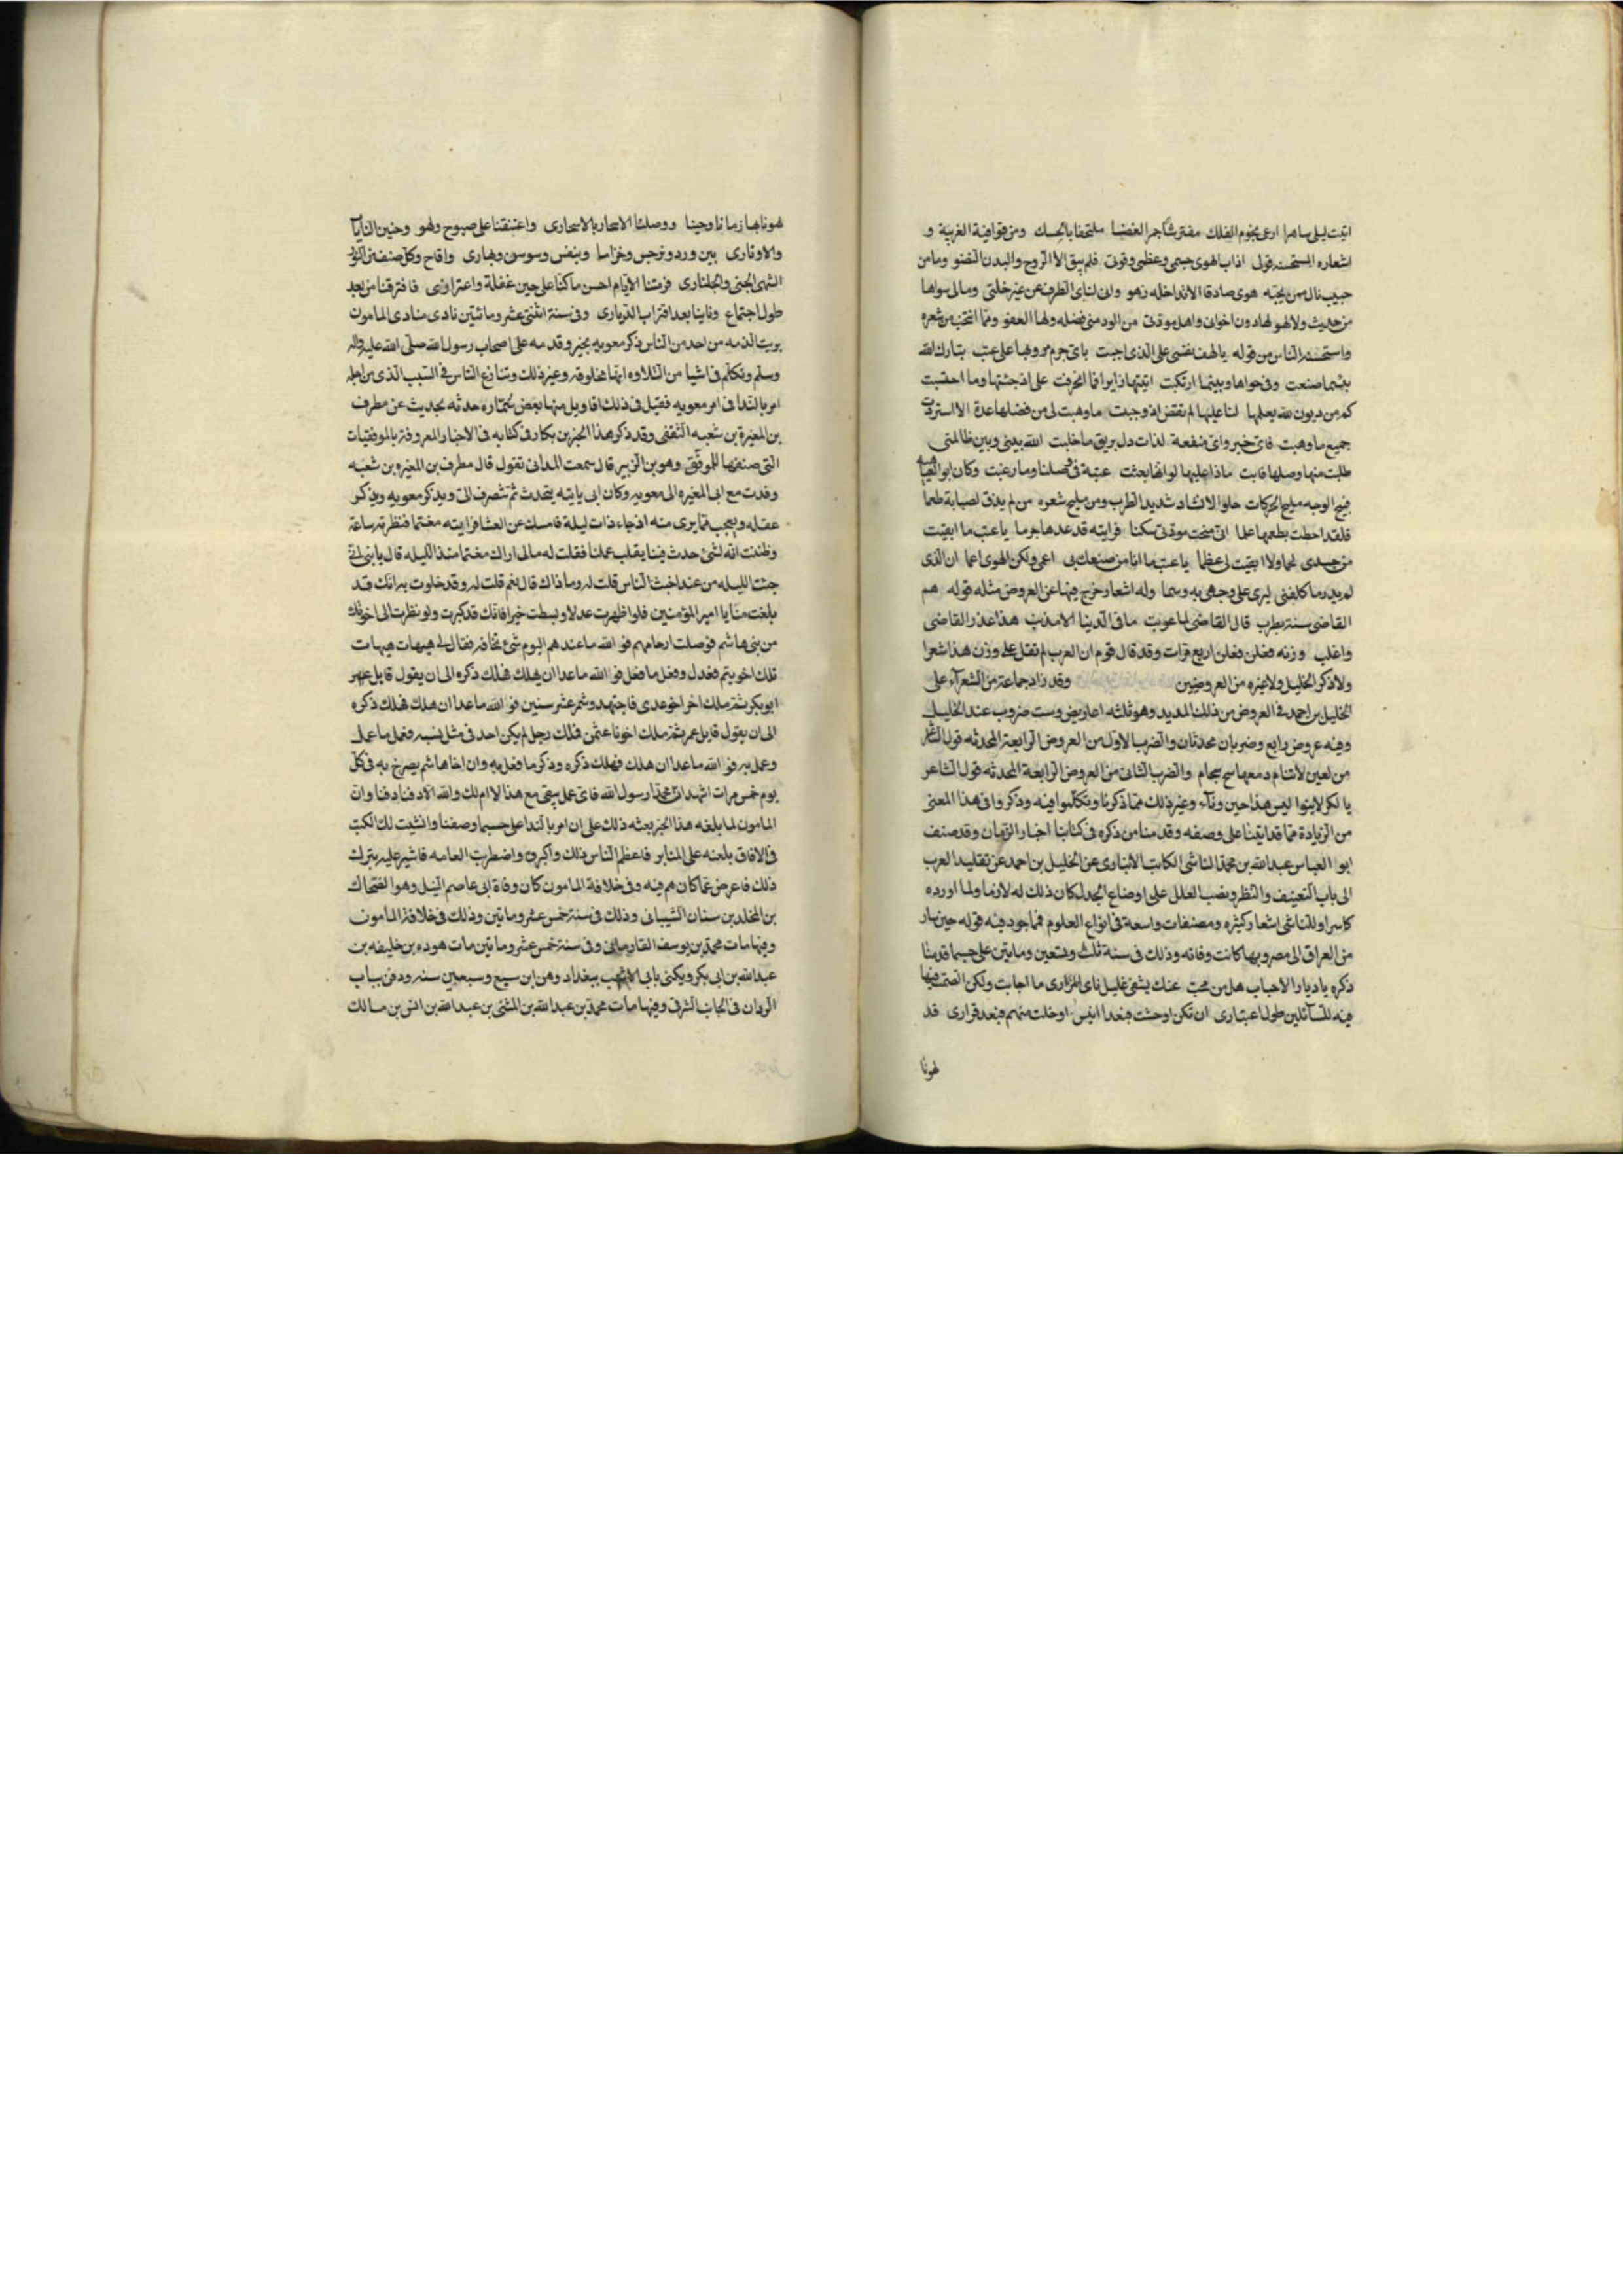 ابيت ليلى ساهرا ارعى نجوم الفلك مفترشا جمر الغضا ملتحفا بالحسك ومن قوافيه الغريبة و
اشعاره المستحسنه قوله اذاب الهوى جسمى وعظمى وقوتى فلم يبق الا الروح والبدن النضو وما من
حبيب نال ممن يحبه هوى صادقا الا يداخله زهو وانى لنائى الطرف عن غير خلتى ومالى سواها
من حديث ولا لهو لها دون اخوانى واهل مودتى من الود منى فضله ولها العفو ومما انتخب من شعره
واستحسنه الناس من قوله يا لهف نفسى على الذى اجتبت باى جرم على عتب تبارك الله
بئسما صنعت وفى هواها وبئسما ارتكبت اتيتها زايرا فما انحرفت على اذ جئتها وما احتسبت
كم من ديون لله يعلمها لنا عليها لم تقض اذ وجبت ما وهبت لى من فضلها عدة الا استردت
جميع ما وهبت فاى خير واى منفعة لذات دل بريق ما خلبت الله بينى وبين ظالمتى
طلبت منها وصلها فابت ماذا عليها لو انها بعثت عتبة فى وصلنا وما رغبت وكان ابو العتاهيه
قبيح الوجه مليح الحركات حلو الانشاد شديد الطرب ومن مليح شعره من لم يذق لصبابة طعما
فلقد احطت بطعمها علما انى منحت مودتى سكنا فرايته قد عدها جرما يا عتب ما ابقيت
من جسدى لحما ولا ابقيت لى عظما يا عتب ما انا من صنيعك بى اعمى ولكن الهوى اعما ان الذى
لم يدر ما كلفنى ليرى على وجهى به وسما وله اشعار خرج فيها عن العروض مثله قوله هم
القاضى سنة يطرب قال القاضى لما عوتب ما فى الدنيا الا مذنب هذا عذر القاضى
واغلب وزنه فعلن فعلن اربع مرات وقد قال قوم ان العرب لم تقل على وزن هذا شعرا
ولا ذكر الخليل ولا غيره من العروضيين وقد زاد جماعة من الشعرآء على
الخليل بن احمد فى العروض من ذلك المديد وهو ثلثه اعاريض وست ضروب عند الخليل
وفيه عروض رابع وضربان محدثان والضرب الاول من العروض الرابعة المحدثه قول الشاعر
من لعين لا تنام دمعها سح سجام والضرب الثانى من العروض الرابعة المحدثه قول الشاعر
يا لبكر لا ينوا ليس هذا حين ونآء وغير ذلك مما ذكرنا وتكلموا فيه وذكروا فى هذا المعنى
من الزيادة مما قد اتينا على وصفه وقدمنا من ذكره فى كتابنا اخبار الزمان وقد صنف
ابوا العباس عبد الله بن محمد الناشى الكاتب الانبارى عن الخليل بن احمد عن تقليد العرب
الى باب التعنيف والنظر ونصب العلل على اوضاع الجدل كان ذلك له لازما ولما اورده
كاسرا وللناشى اشعار كثيره ومصنفات واسعة فى انواع العلوم فمما جود فيه قوله حين سار
من العراق الى مصر وبها كانت وفاته وذلك فى سنة ثلث وتسعين ومايتين على حسبما قدمنا
ذكره يا ديار الاحباب هل من مجيب عنك يشفى غليل نائ المزارى ما اجابت ولكن الصمت فيها
فيه للسآئلين طول اعتبارى ان تكن اوحشت فبعد انيس او خلت منهم فبعد قرارى قد
لهونا
لهونا بها زمانا وحينا ووصلنا الاسحار بالاسحارى واعتنقنا على صبوح ولهو وحنين النايات
والاوتارى بين ورد ونرجس وخزاما وبنفس وسوسن وبهارى واقاح وكل صنف من النور
الشهى الجنى والجلنارى فرمتنا الايام احسن ما كنا على حين غفلة واغترارى فافترقنا من بعد
طول اجتماع ونأينا بعد اقتراب الديارى وفى سنة اثنتى عشر ومائتين نادى منادى المامون
بريت الذمه من احد من الناس ذكر معويه بخير وقدمه على اصحاب رسول الله صلى الله عليه واله
وسلم وتكلم فى اشيا من التلاوه انها مخلوقه وغير ذلك وتنازع الناس فى السبب الذى من اجله
امر بالندا فى امر معويه فقيل فى ذلك اقاويل منها بعض سماره حدثه بحديث عن مطرف
بن المغيرة بن شعبه الثقفى وقد ذكر هذا الخبر بن بكار فى كتابه فى الاخبار المعروفه بالموفقيات
التى صنفها للموفق وهو بن الزبير قال سمعت المداينى تقول قال مطرف بن المغيره بن شعبه
وفدت مع ابى المغيره الى معويه وكان ابى ياتيه يتحدث ثم تصرف الى ويذكر معويه ويذكر
عقله ويعجب مما يرى منه اذ جاء ذات ليلة فامسك عن العشا فرايته مغتما فنظرته ساعة
وظننت انه لشئ حدث فينا يقلب عملنا فقلت له مالى اراك مغتما منذ الليله قال يا بنى انى
جئت الليله من عند اخبث الناس قلت له وما ذاك قال نعم قلت له وقد خلوت به انك قد
بلغت منا يا امير المؤمنين فلو اظهرت عدلا وبسطت خيرا فانك قد كبرت ولو نظرت الى اخوتك
من بنى هاشم فوصلت ارحامهم فوالله ما عندهم اليوم شئ تخافه فقال لى هيهات هيهات
ملك اخو تيم فعدل وفعل ما فعل فوالله ما عدا ان هلك فهلك ذكره الى ان يقول قايل
ابو بكر ثم ملك اخو عدى فاجتهد وشمر عشر سنين فوالله ما عدا ان هلك فهلك ذكره
الى ان يقول قايل عمر ثم ملك اخونا عثمن فملك رجل لم يكن احد فى مثل نسبه فعمل ما عمل
وعمل به فوالله ما عدا ان هلك فهلك ذكره وذكر ما فعل به وان اخا هاشم يصرخ به فى كل
يوم خمس مرات اشهد ان محمدا رسول الله فاى عمل يبقى مع هذا لا ام لك والله الا دفنا دفنا وان
المامون لما بلغه هذا الخبر بعثه ذلك على ان امر بالندا على حسبما وصفنا وانشيت لك الكتب
فى الافاق بلعنه على المنابر فاعظم الناس ذلك واكبروه واضطربت العامه فاشير عليه بترك
ذلك فاعرض عما كان هم فيه وفى خلافة المامون كان وفاة ابى عاصم النبيل وهو الضحاك
بن المخلد بن سنان الشيبانى وذلك فى سنة خمس عشر ومايتين وذلك فى خلافة المامون
وفيها مات محمد بن يوسف الفاريابى وفى سنة خمس عشر ومايتين مات هوده بن خليفه بن
عبد الله بن ابى بكر ويكنى بابى الاشهب ببغداد وهن ابن سبع وسبعين سنه ودفن بباب
الردان فى الجانب الشرقى وفيها مات محمد بن عبد الله بن المثنى بن عبد الله بن انس بن مالك